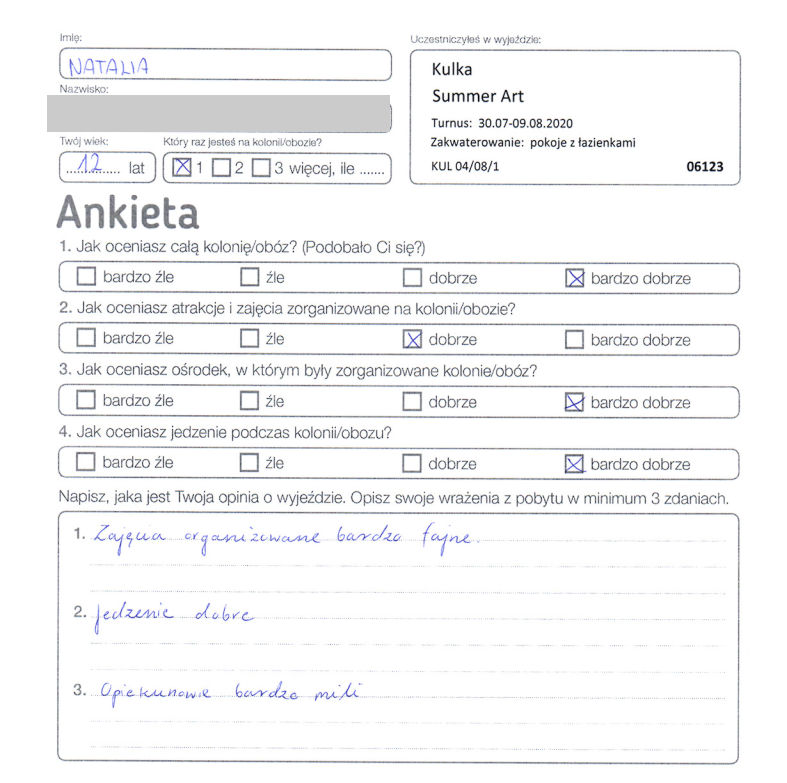 Imię:
NATALIA
Nazwisko:
Twój wiek:
12 lat
Który raz jesteś na kolonii/obozie?
1 2 3 więcej, ile .......
Uczestniczyłeś w wyjeździe:
Kulka
Summer Art
Turnus: 30.07-09.08.2020
Zakwaterowanie: pokoje z łazienkami
KUL 04/08/1 06123
Ankieta
1. Jak oceniasz całą kolonię/obóz? (Podobało Ci się?)
bardzo źle źle dobrze bardzo dobrze
2. Jak oceniasz atrakcje i zajęcia zorganizowane na kolonii/obozie?
bardzo źle źle dobrze bardzo dobrze
3. Jak oceniasz ośrodek, w którym były zorganizowane kolonie/obóz?
bardzo źle źle dobrze bardzo dobrze
4. Jak oceniasz jedzenie podczas kolonii/obozu?
bardzo źle źle dobrze bardzo dobrze
Napisz, jaka jest Twoja opinia o wyjeździe. Opisz swoje wrażenia z pobytu w minimum 3 zdaniach.
1. Zajęcia organizowane bardzo fajne.
2. jedzenie dobre
3. Opiekunowie bardzo mili